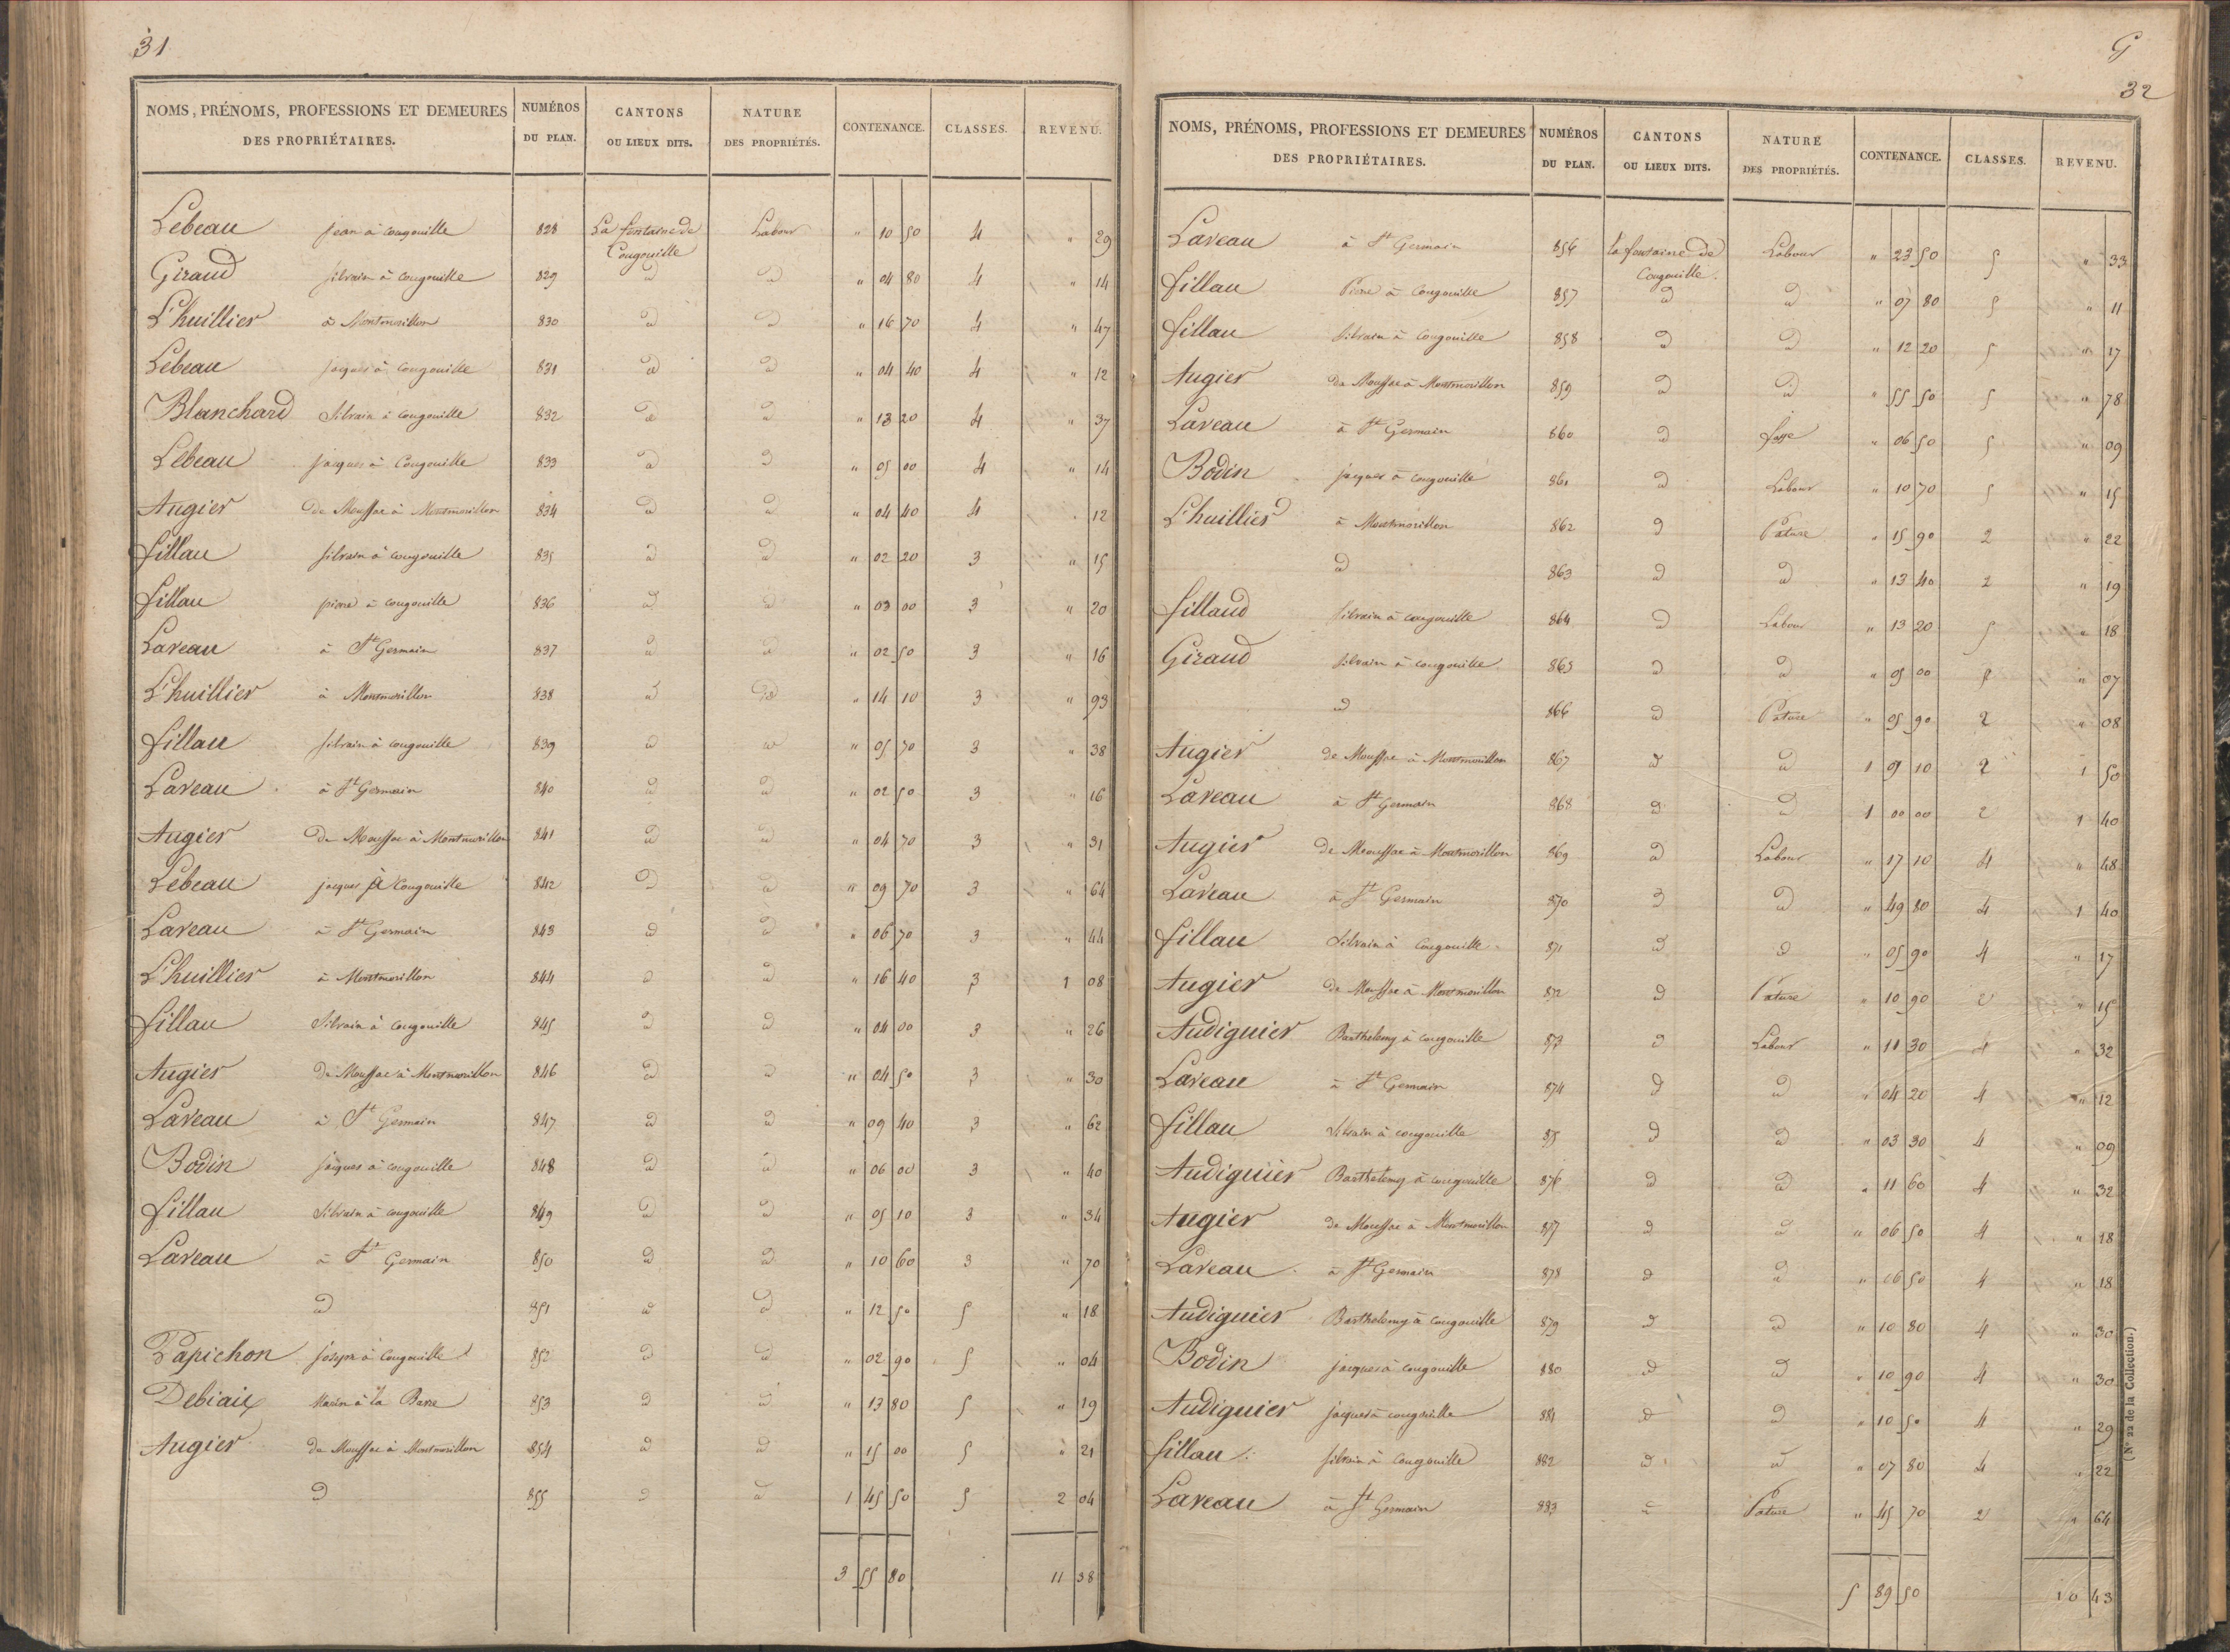 31
NOMS, PRÉNOMS, PROFESSIONS ET DEMEURES DES PROPRIÉTAIRES. NUMÉROS DU PLAN. CANTONS OU LIEUX DITS. NATURE DES PROPRIÉTÉS. CONTENANCE. CLASSES. REVENU.
Lebeau jean à Cougouille 828 La fontaine de Cougouille Labour " 10 50 4 " 29
Giraud silvain à Cougouille 829 d d " 04 80 4 " 14
L'huillier à Montmorillon 830 d d " 16 70 4 " 47
Lebeau jaques à Cougouille 831 d d " 04 40 4 " 12
Blanchard Silvain à Cougouille 832 d d " 13 20 4 " 37
Lebeau jacques à Cougouille 833 d d " 05 00 4 " 14
Augier de Moussac à Montmorillon 834 d d " 04 40 4 " 12
fillau silvain à cougouille 835 d d " 02 20 3 " 15
fillau pierre à cougouille 836 d d " 03 00 3 " 20
Laveau à St Germain 837 d d " 02 50 3 " 16
L'huillier à Montmorillon 838 d d " 14 10 3 " 93
fillau silvain à cougouille 839 d d " 05 70 3 " 38
Laveau à St Germain 840 d d " 02 50 3 " 16
Augier de Moussac à Montmorillon 841 d d " 04 70 3 " 31
Lebeau jacques à Cougouille 842 d d " 09 70 3 " 64
Laveau à St Germain 843 d d " 06 70 3 " 44
L'huillier à Montmorillon 844 d d " 16 40 3 1 08
fillau Silvain à Cougouille 845 d d " 04 00 3 " 26
Augier de Moussac à Montmorillon 846 d d " 04 50 3 " 30
Laveau à St Germain 847 d d " 09 40 3 " 62
Bodin jaques à cougouille 848 d d " 06 00 3 " 40
fillau Silvain à cougouille 849 d d " 05 10 3 " 34
Laveau à St Germain 850 d d " 10 60 3 " 70
d 851 d d " 12 50 5 " 18
Papichon joseph à Cougouille 852 d d " 02 90 5 " 04
Debiaix Marin à la Barre 853 d d " 13 80 5 " 19
Augier de Moussac à Montmorillon 854 d d " 15 00 5 " 21
d 855 d d 1 45 50 5 2 04
3 55 80 11 38
G
32
NOMS, PRÉNOMS, PROFESSIONS ET DEMEURES DES PROPRIÉTAIRES. NUMÉROS DU PLAN. CANTONS OU LIEUX DITS. NATURE DES PROPRIÉTÉS. CONTENANCE. CLASSES. REVENU.
Laveau à St Germain 856 la fontaine de Cougouille. Labour " 23 50 5 " 33
fillau Pierre à Cougouille 857 d d " 07 80 5 " 11
fillau Silvain à Cougouille 858 d d " 12 20 5 " 17
Augier de Moussac à Montmorillon 859 d d " 55 50 5 " 78
Laveau à St Germain 860 d " 06 50 5 " 09
Bodin jacques à cougouille 861 d Labour " 10 70 5 " 15
L'huillier à Montmorillon 862 d Pature " 15 90 2 " 22
d 863 d d " 13 40 2 " 19
fillaud silvain à cougouille 864 d Labour " 13 20 5 " 18
Giraud silvain à cougouille 865 d d " 05 00 5 " 07
d 866 d Pature " 05 90 2 " 08
Augier de Moussac à Montmorillon 867 d d 1 9 10 2 1 50
Laveau à St Germain 868 d d 1 00 00 2 1 40
Augier de Moussac à Montmorillon 869 d Labour " 17 10 4 " 48
Laveau à St Germain 870 d d " 49 80 4 1 40
fillau Silvain à Cougouille 871 d d " 05 90 4 " 17
Augier de Moussac à Montmorillon 872 d Pature " 10 90 2 " 15
Audiguier Barthelemy à cougouille 873 d Labour " 11 30 4 " 32
Laveau à St Germain 874 d d " 04 20 4 " 12
fillau Silvain à cougouille 875 d d " 03 30 4 " 09
Audiguier Barthelemy à cougouille 876 d d " 11 60 4 " 32
Augier de Moussac à Montmorillon 877 d d " 06 50 4 " 18
Laveau à St Germain 878 d d " 06 50 4 " 18
Audiguier Barthelemy à Cougouille 879 d d " 10 80 4 " 30
Bodin jacques à cougouille 880 d d " 10 90 4 " 30
Audiguier jacques à cougouille 881 d d " 10 50 4 " 29
fillau silvain à Cougouille 882 d d " 07 80 4 " 22
Laveau à St Germain 883 d Pature " 45 70 2 " 64
5 89 50 10 43
(N° 22 de la Collection.)